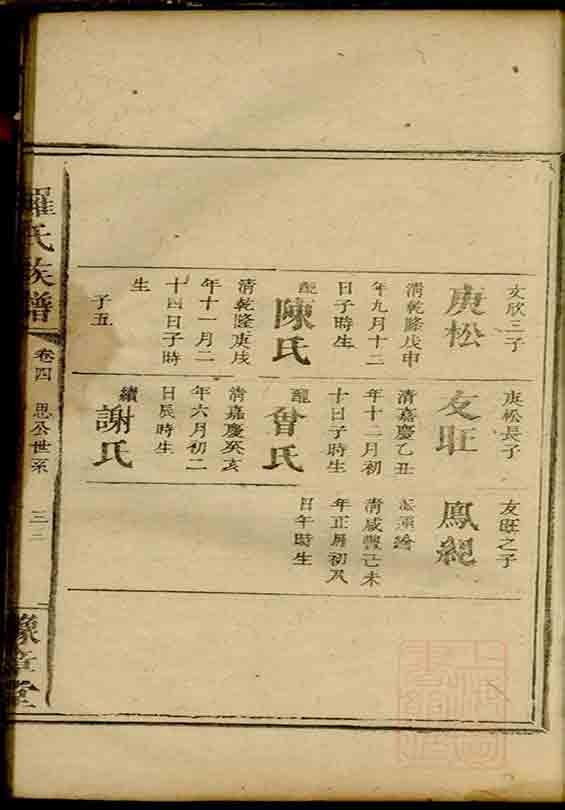 文欣三子
庚松
清乾隆戊申
年九月十二
日子時生
配
陳氏
清乾隆庚戌
年十一月二
十四日子時
生
子五
庚松長子
友旺
清嘉慶乙丑
年十二月初
十日子時生
配
曾氏
清嘉慶癸亥
年六月初二
日辰時生
續
謝氏
友旺之子
鳳
清咸豐己未
年正月初
日午時生
羅氏族譜
卷四
思公世系
豫章堂